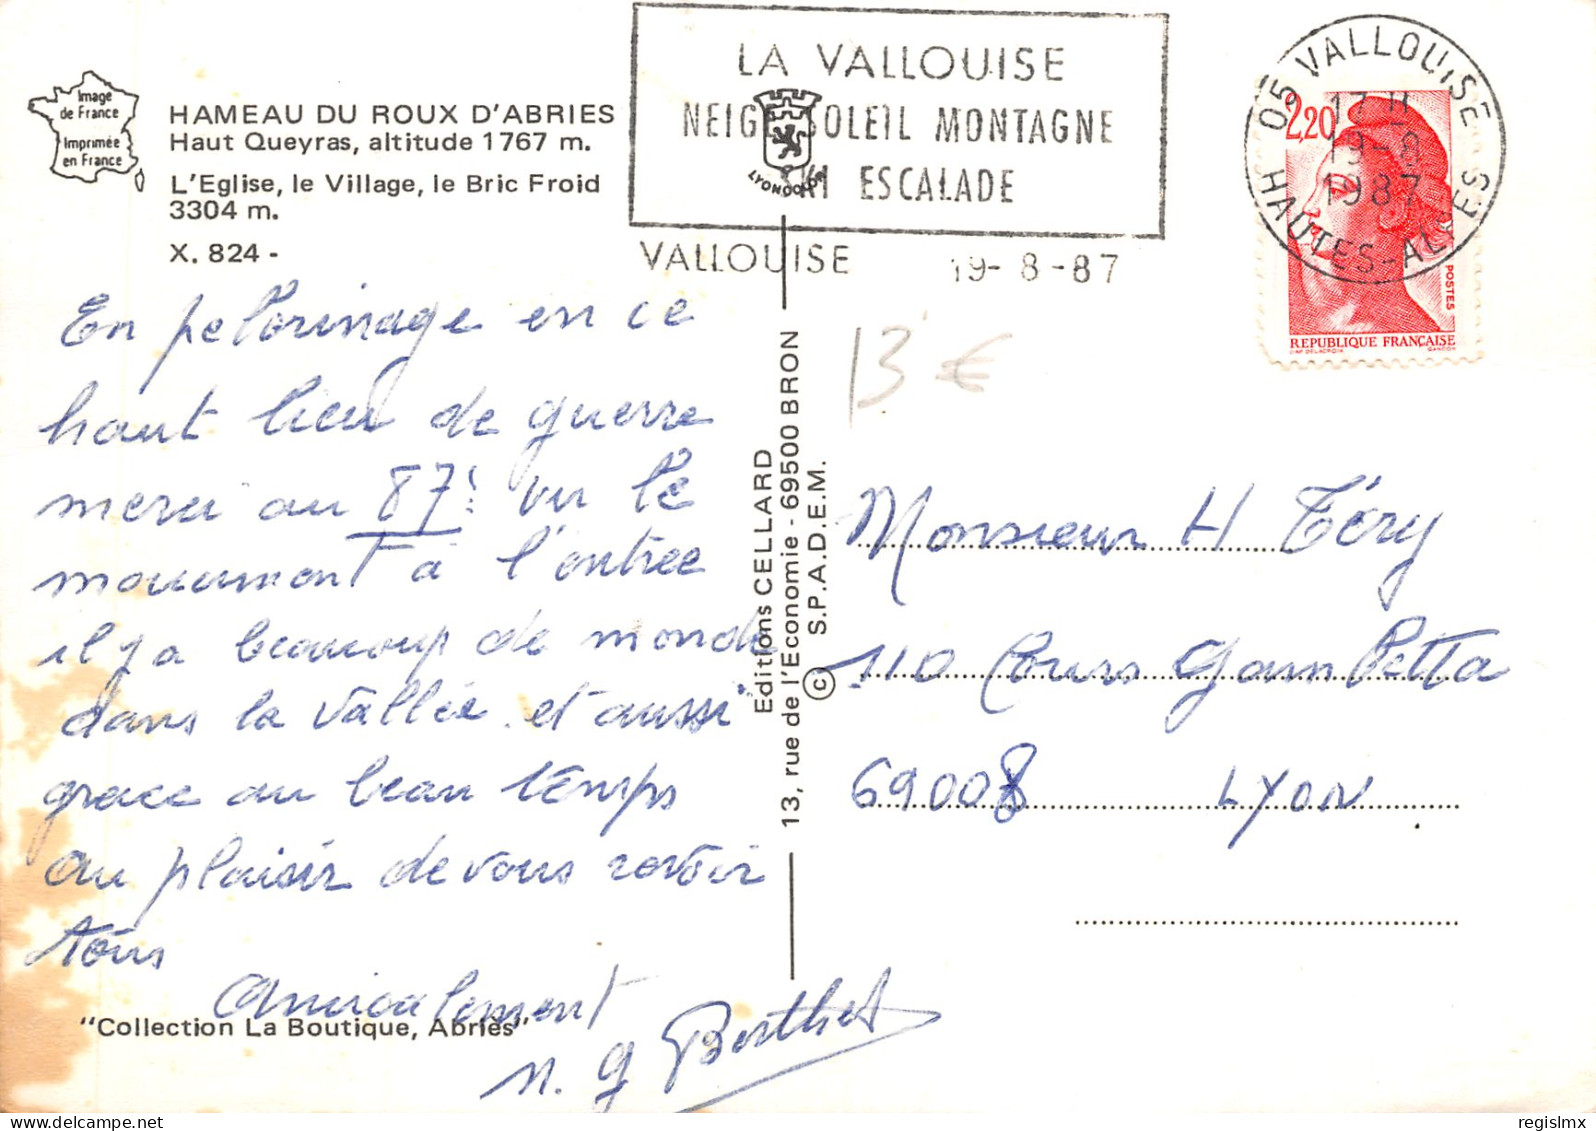 Image
de France
Imprimée
en France
HAMEAU DU ROUX D'ABRIES
Haut Queyras, altitude 1767 m.
L'Eglise, le Village, le Bric Froid
3304 m.
X. 824 -
En pelerinage en ce
haut lieu de guerre
merci au 87! vu le
monument à l'entrée
il y a beaucoup de monde
dans la vallée et aussi
grace au beau temps
au plaisir de vous revoir
tous
Amicalement
M. G Berthet
"Collection La Boutique, Abriès"
LA VALLOUISE
NEIGE SOLEIL MONTAGNE
SKI ESCALADE
VALLOUISE 19-8-87
LYONCOLOR
Editions CELLARD
13, rue de l'Economie - 69500 BRON
© S.P.A.D.E.M.
13 €
05 VALLOUISE
17 H
19-8
1987
HAUTES-ALPES
2,20
POSTES
REPUBLIQUE FRANÇAISE
D'AP. DELACROIX GANDON
Monsieur H Téry
110 Cours Gambetta
69008 LYON
regislmx
delcampe.net